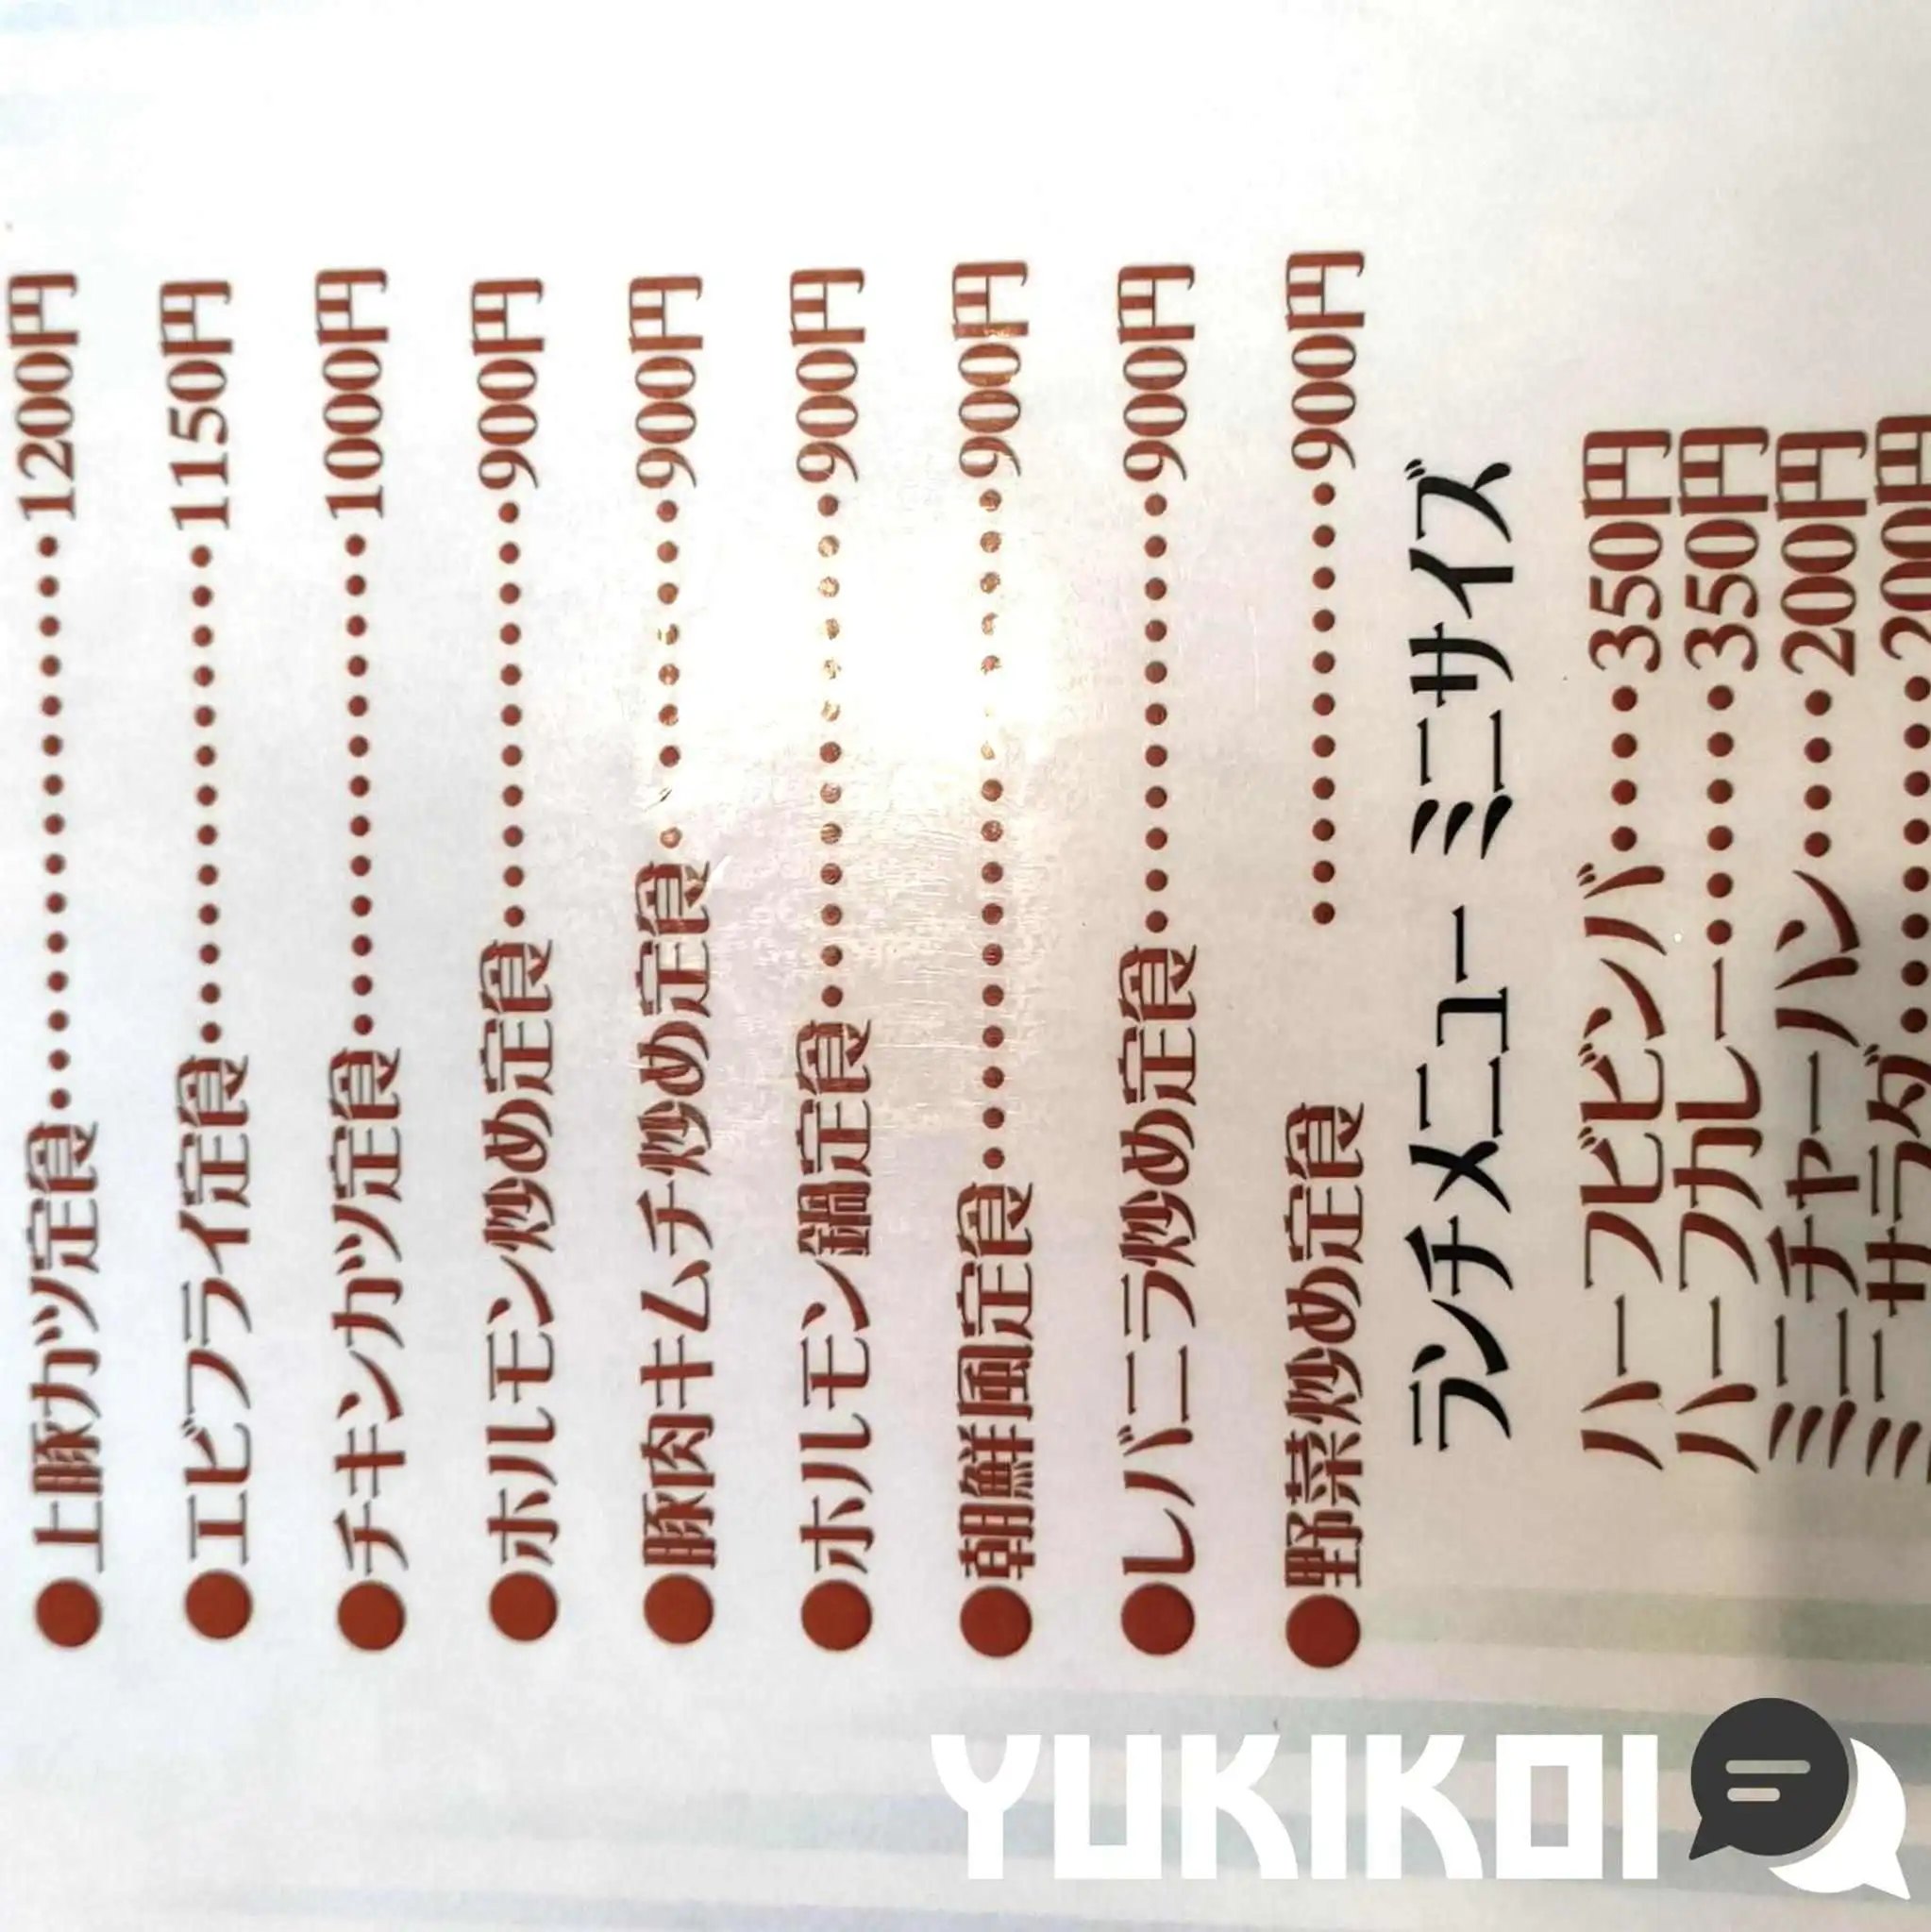 ●上豚カツ定食・・・・・・・・・・・・・・・1200円
●エビフライ定食・・・・・・・・・・・・・1150円
●チキンカツ定食・・・・・・・・・・・・・1000円
●ホルモン炒め定食・・・・・・・・・・・900円
●豚肉キムチ炒め定食・・・・・・・・・900円
●ホルモン鍋定食・・・・・・・・・・・・・900円
●朝鮮風定食・・・・・・・・・・・・・・・・・900円
●レバニラ炒め定食・・・・・・・・・・・900円
●野菜炒め定食 ・・・・・・・・・・・900円
ランチメニュー ミニサイズ
ハーフビビンバ・・・・350円
ハーフカレー・・・・・・350円
ミニチャーハン・・・・200円
ミニサラダ・・・・・・・・200円
YUKIKOI